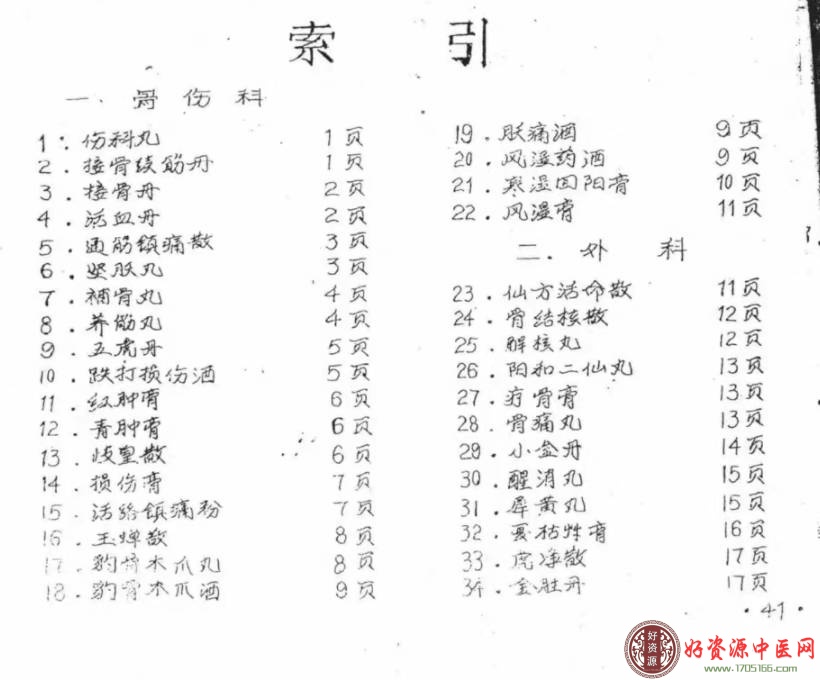 索 引
一、骨伤科
1.伤科丸 1页
2.接骨续筋丹 1页
3.接骨丹 2页
4.活血丹 2页
5.通筋镇痛散 3页
6.坚肤丸 3页
7.補骨丸 4页
8.养筋丸 4页
9.五虎丹 5页
10.跌打损伤酒 5页
11.红肿膏 6页
12.青肿膏 6页
13.歧皇散 6页
14.损伤膏 7页
15.活络镇痛粉 7页
16.玉蝉散 8页
17.豹骨木爪丸 8页
18.豹骨木爪酒 9页
19.肤痛酒 9页
20.风湿药酒 9页
21.寒湿回阳膏 10页
22.风湿膏 11页
二.外 科
23.仙方活命散 11页
24.骨结核散 12页
25.解核丸 12页
26.阳和二仙丸 13页
27.疗骨膏 13页
28.骨痛丸 13页
29.小金丹 14页
30.醒消丸 15页
31.犀黄丸 15页
32.夏枯草膏 16页
33.虎净散 17页
34.金胜丹 17页
·41·
好资源
中医网
好资源中医网
www.1705166.com